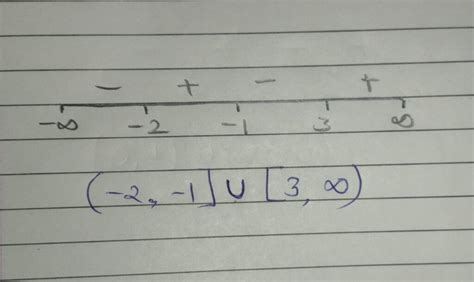 − + − +
-∞ -2 -1 3 ∞
(-2, -1] ∪ [3, ∞)